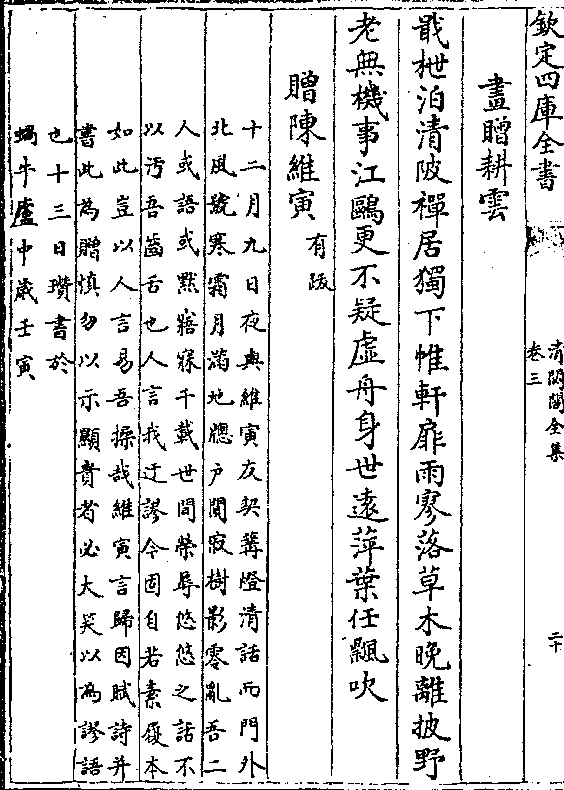 欽定四庫全書
清閟閣全集
卷三
二十
畫贈耕雲
戢枻泊清陂禪居獨下帷軒扉雨寥落草木晚離披野
老無機事江鷗更不疑虛舟身世遠萍葉任飄吹
贈陳維寅
有跋
十二月九日夜與維寅友契篝燈清話而門外
北風號寒霜月滿地牕户閴寂樹影零亂吾二
人或語或黙寤寐千載世間榮辱悠悠之話不
以汚吾齒舌也人言我迂謬今固自若素履本
如此豈以人言易吾操哉維寅言歸因賦詩并
書此為贈慎勿以示顯貴者必大笑以為謬語
也十三日瓚書於
蝸牛廬中歲壬寅